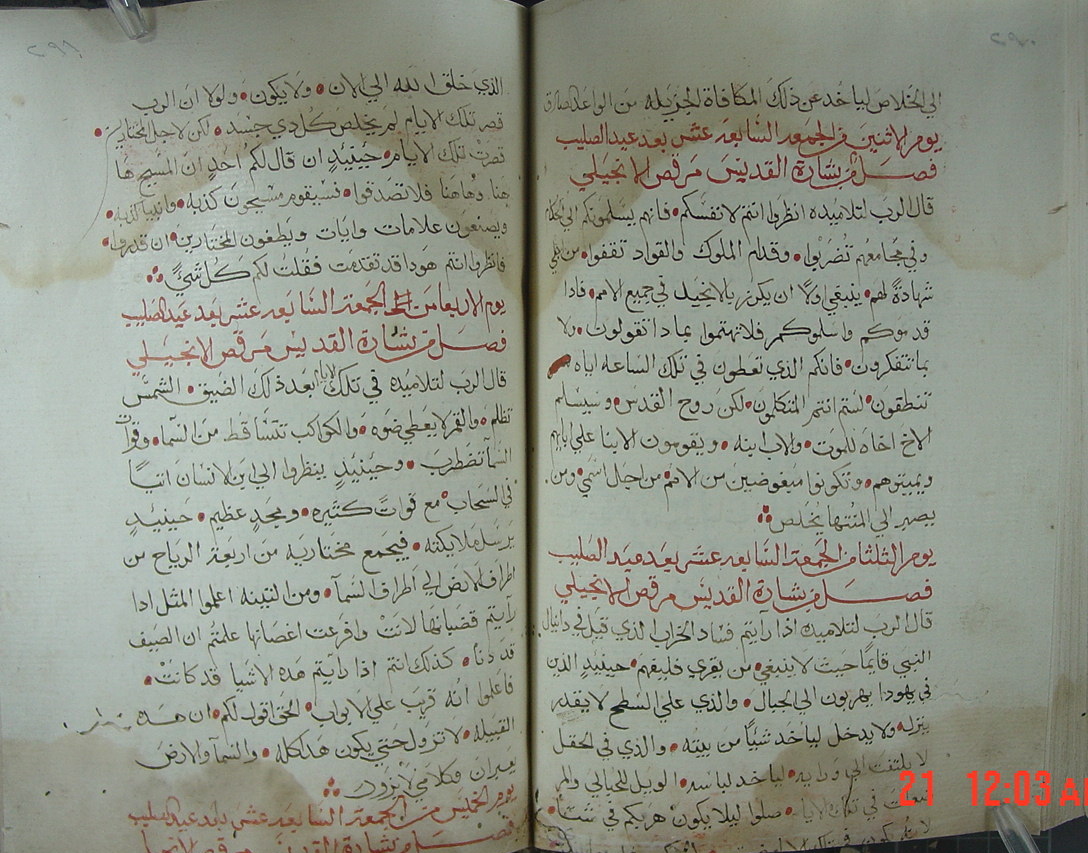 الي الخلاص لياخد عن ذلك المكافاة الجزيله من الواعد الصادق
يوم الاثنين من الجمعه السابعه عشر بعد عيد الصليب
فصل من بشارة القديس مرقص الانجيلي
قال الرب لتلاميده انظروا انتم لانفسكم • فانهم يسلمونكم الي
وفي مجامعهم تضربوا • وقدام الملوك والقواد تقفوا • من اجلي
شهادة لهم • ينبغي اولا ان يكرز بالانجيل في جميع الامم • فادا
قدموكم واسلموكم فلا تهتموا بما دا تقولون • ولا
بما تتفكرون • فانكم الذي تعطون في تلك الساعه اياه
تنطقون • لستم انتم المتكلمون • لكن روح القدس • وسيسلم
الاخ اخاه للموت • والاب ابنه • ويقومون الابنا علي ابايهم
ويميتوهم • وتكونوا مبغوضين من الامم • من اجل اسمي • ومن
يصبر الي المنتها يخلص
يوم الثلثا من الجمعة السابعه عشر بعد عيد الصليب
فصل من بشارة القديس مرقص الانجيلي
قال الرب لتلاميده اذا رايتم فساد الخراب الذي قيل في دانيال
النبي قايما حيت لا ينبغي • من يقري فليفهم • حينيد الذين
في يهودا يهربون الي الجبال • والذي علي السطح لا يقدر
ينزله • ولا يدخل لياخد شيا من بيته • والذي في الحقل
لا يلتفت الي ورايه • لياخد لباسه • الويل للحبالي والمر
في تلك الايام • صلوا ليلا يكون هربكم في شتا •
٢٩٢
الذي خلق الله الي الان • ولا يكون • ولولا ان الرب
قصر تلك الايام لم يخلص كل دي جسد • لكن لاجل المختارين •
قصرت تلك الايام • حينيد ان قال لكم احد ان المسيح ها
هنا وهاهنا فلا تصدقوا • فسيقوم مسيحون كدبه • وانبيا كدبه •
ويصنعون علامات وايات ويطغون المختارين • ان قدروا •
فانظروا انتم هودا قد تقدمت فقلت لكم كل شي
يوم الاربعا من الجمعة السابعه عشر بعد عيد الصليب
فصل من بشارة القديس مرقص الانجيلي
قال الرب لتلاميده في تلك الايام بعد ذلك الضيق • الشمس
تظلم • والقمر لا يعطي ضوه • والكواكب تتساقط من السما • وقوات
السما تضطرب • وحينيد ينظروا الي ابن الانسان اتيا
في السحاب مع قوات كتيره • ومجد عظيم • حينيد
يرسل ملايكته • فيجمع مختاريه من اربعة الرياح من
اطراف الارض الي اطراف السما • ومن التينه اعلموا المثل ادا
رايتم قضبانها لانت وافرعت اغصانها علمتم ان الصيف
قد دنا • كدلك انتم اذا رايتم هده الاشيا قد كانت •
فاعلموا انه قريب علي الابواب • الحق اقول لكم • ان هده
القبيله • لا تزول حتي يكون هدا كله • والسما والارض
يعبران وكلامي لا يزول
يوم الخميس من الجمعة السابعه عشر بعد عيد الصليب
فصل من بشارة القديس مرقص
21 12:03 A